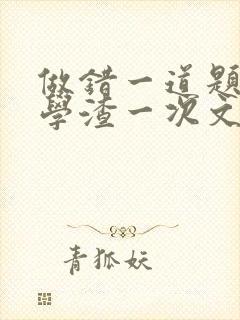 做錯一道題
學渣一次文
青狐妖